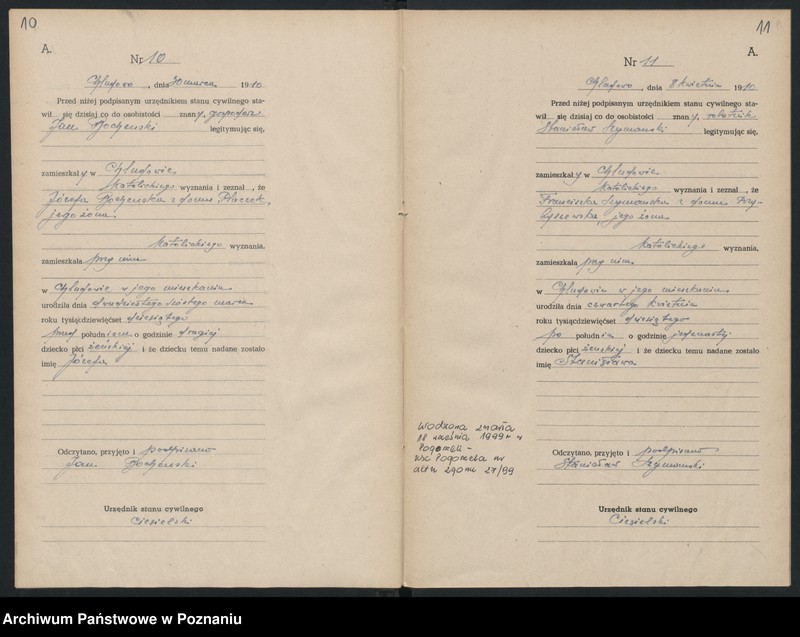 10
A.
Nr 10
Chludowo, dnia 30 marca 1910
Przed niżej podpisanym urzędnikiem stanu cywilnego sta-
wił się dzisiaj co do osobistości znany, gospodarz
Jan legitymując się,
zamieszkały w Chludowie
katolickiego wyznania i zeznał, że
Józefa z domu Płaczek,
jego żona
katolickiego wyznania,
zamieszkała przy nim
w Chludowie w jego mieszkaniu
urodziła dnia dwudziestego szóstego marca
roku tysiącdziewięćset dziesiątego
przed południem o godzinie drugiej
dziecko płci żeńskiej i że dziecku temu nadane zostało
imię Józefa
Odczytano, przyjęto i podpisano
Jan
Urzędnik stanu cywilnego
Ciesielski
11
A.
Nr 11
Chludowo, dnia 8 kwietnia 1910
Przed niżej podpisanym urzędnikiem stanu cywilnego sta-
wił się dzisiaj co do osobistości znany, robotnik
Stanisław Szymański legitymując się,
zamieszkały w Chludowie
katolickiego wyznania i zeznał, że
Franciszka Szymańska z domu Przy-
byszewska, jego żona
katolickiego wyznania,
zamieszkała przy nim
w Chludowie w jego mieszkaniu
urodziła dnia czwartego kwietnia
roku tysiącdziewięćset dziesiątego
po południu o godzinie jedenastej
dziecko płci żeńskiej i że dziecku temu nadane zostało
imię Stanisława
Odczytano, przyjęto i podpisano
Stanisław Szymański
Urzędnik stanu cywilnego
Ciesielski
zmarła
18 września 1999 r w
Pogorzeli -
USC Pogorzela nr
aktu zgonu 27/99
Archiwum Państwowe w Poznaniu